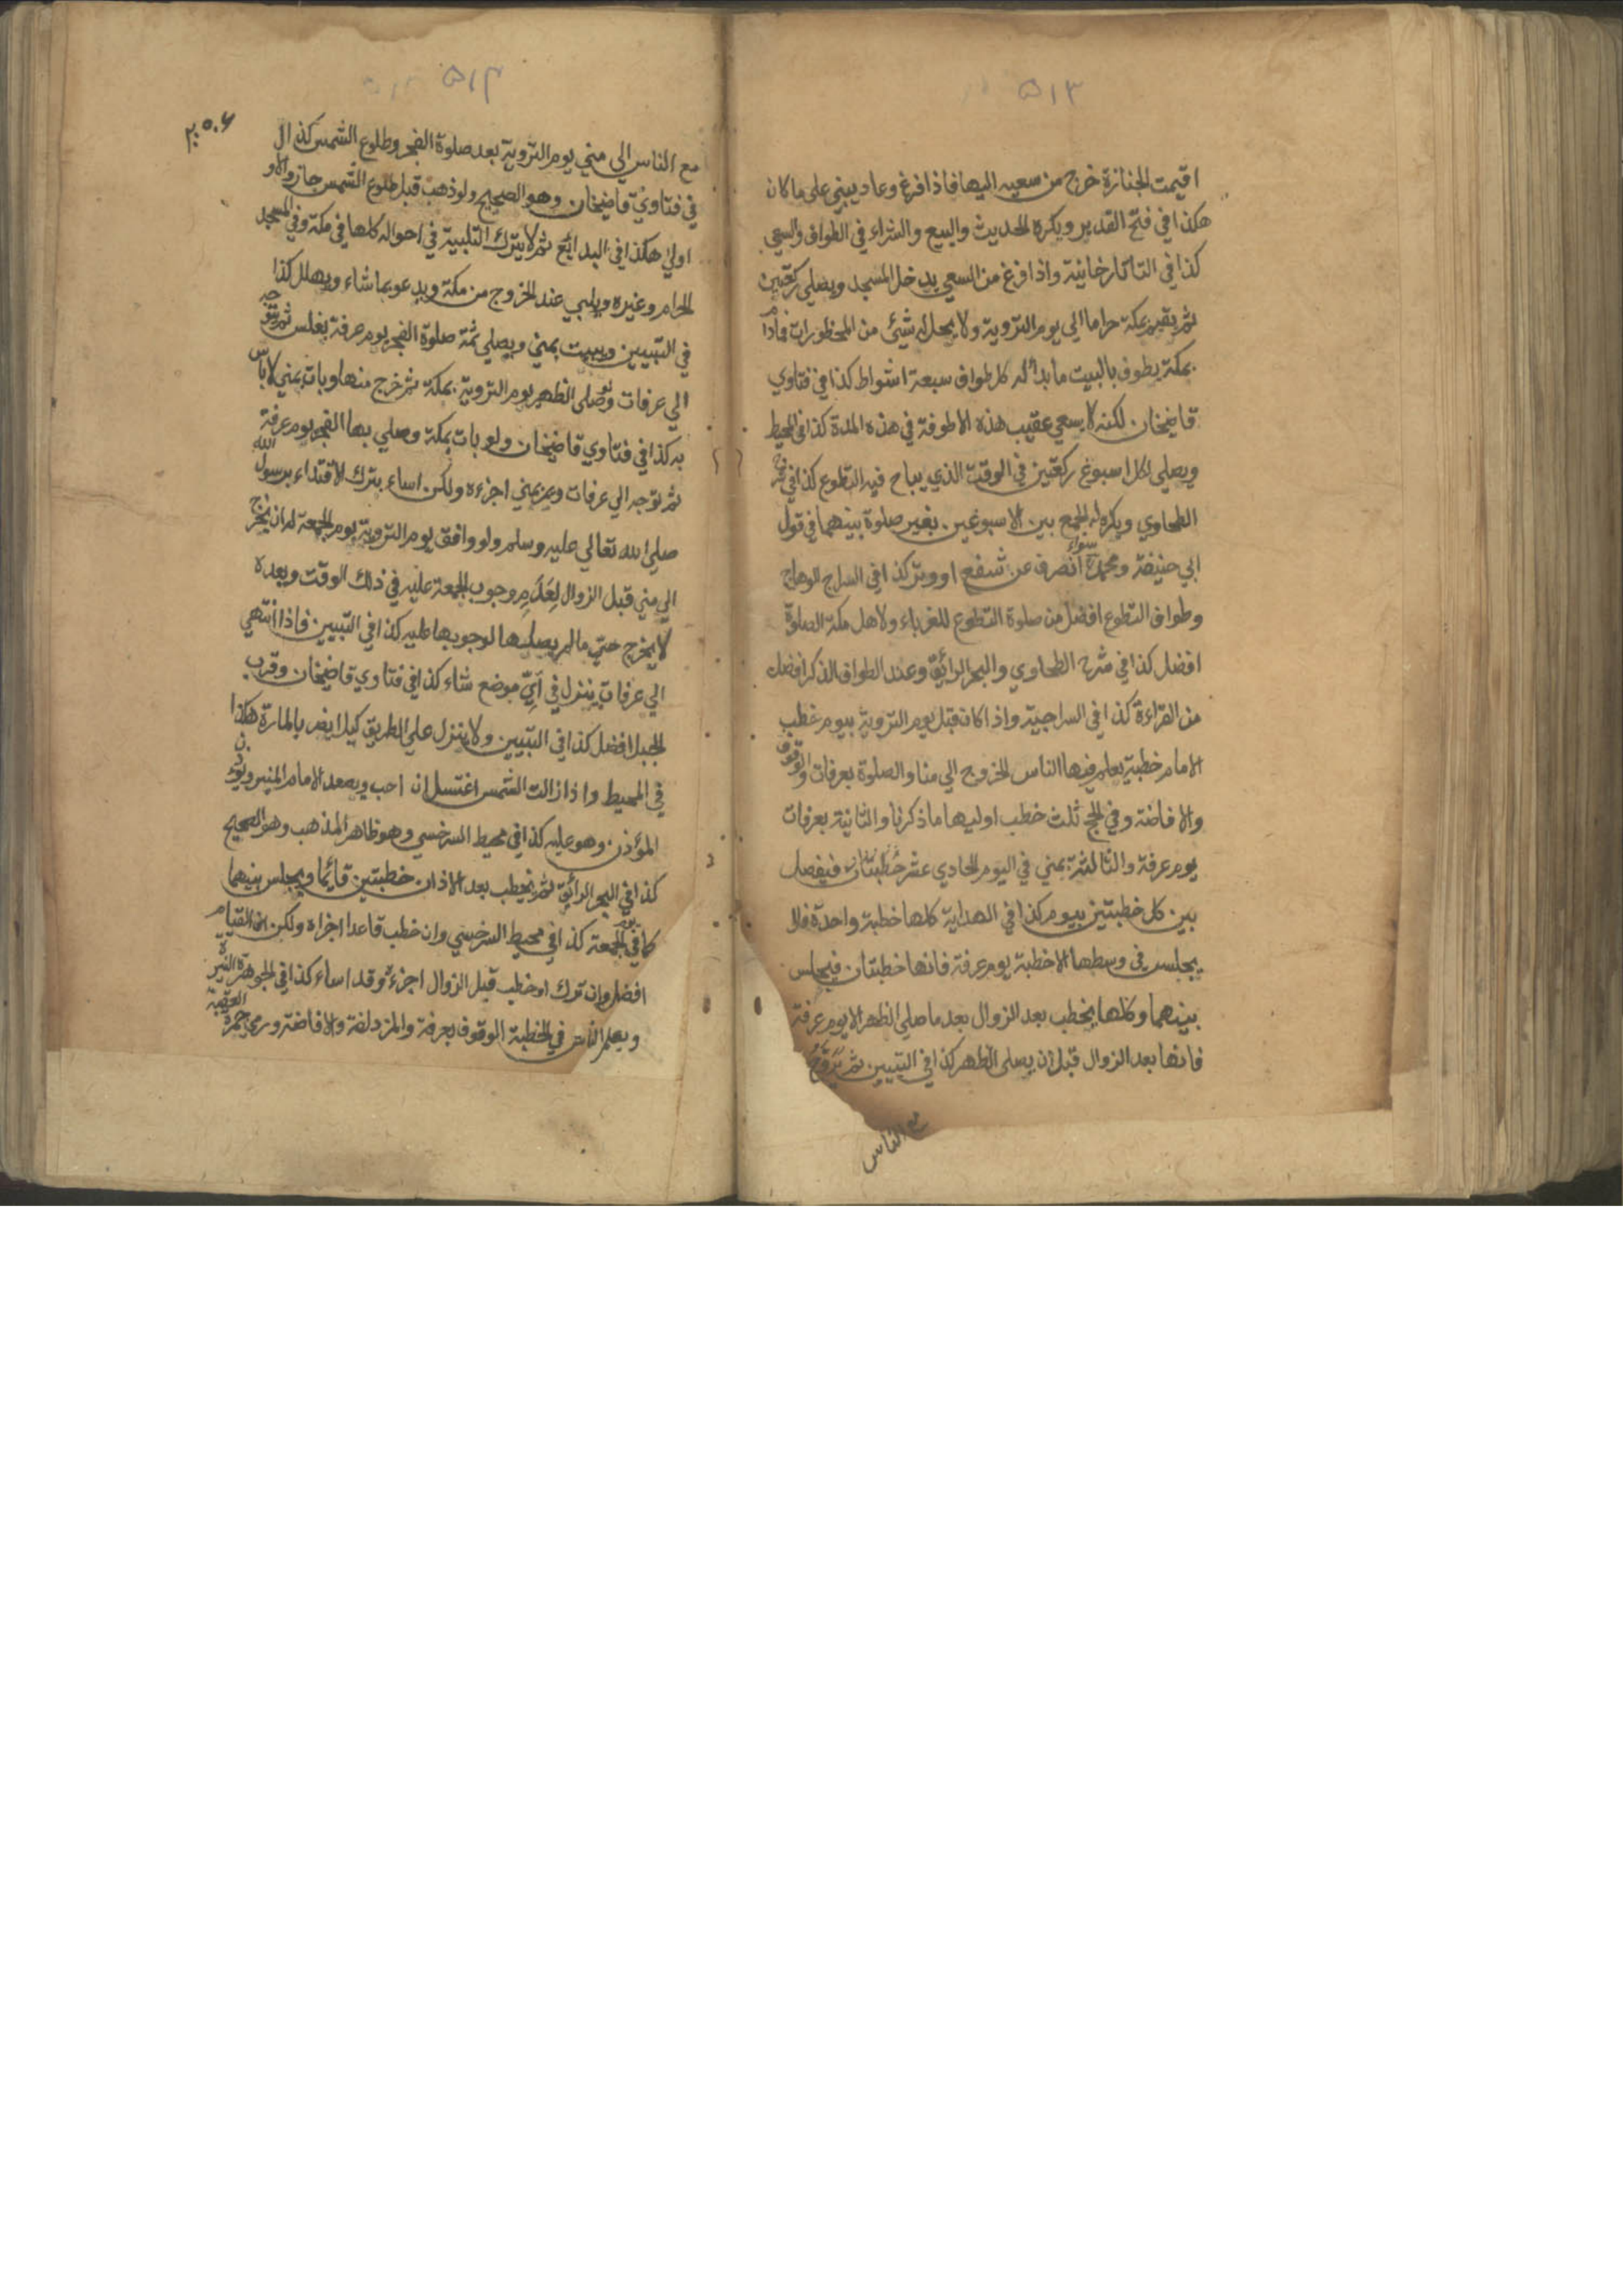 ٥١٣
اقيمت الجنازة خرج من سعيه اليها فاذا فرغ وعاد يبني على ما كان
هكذا في فتح القدير ويكره الحديث والبيع والشراء في الطواف والسعي
كذا في التاتارخانية واذا فرغ من السعي يدخل المسجد ويصلي ركعتين
ثم يقيم بمكة حراما الي يوم التروية ولا يحل له شيئ من المحظورات فمادام
بمكة يطوف بالبيت ما بدا له كل طواف سبعة اشواط كذا في فتاوي
قاضيخان لكنه لا يسعي عقيب هذه الاطوفة في هذه المدة كذا في المحيط
ويصلي لكل اسبوع ركعتين في الوقت الذي يباح فيه التطوع كذا في شرح
الطحاوي ويكره له الجمع بين الاسبوعين بغير صلوة بينهما في قول
ابي حنيفة ومحمد سواء انصرف عن شفع او وتر كذا في السراج الوهاج
وطواف التطوع افضل من صلوة التطوع للغرباء ولاهل مكة الصلوة
افضل كذا في شرح الطحاوي والبحر الرائق وعند الطواف الذكر افضل
من القراءة كذا في السراجية واذا كان قبل يوم التروية بيوم خطب
الامام خطبة يعلم فيها الناس الخروج الي منا والصلوة بعرفات والوقوف
والافاضة وفي الحج ثلث خطب اوليها ما ذكرنا والثانية بعرفات
يوم عرفة والثالثة بمني في اليوم الحادي عشر خطبتان فيفصل
بين كل خطبتين بيوم كذا في الهداية كلها خطبة واحدة فلا
يجلس في وسطها الا خطبة يوم عرفة فانها خطبتان فيجلس
بينهما وكلها يخطب بعد الزوال بعد ما صلي الظهر الا يوم عرفة
فانها بعد الزوال قبل ان يصلى الظهر كذا في التبيين ثم يروح
مع الناس
٥١٤
٢٠٥٠٦
مع الناس الي مني يوم التروية بعد صلوة الفجر وطلوع الشمس كذا
في فتاوي قاضيخان وهو الصحيح ولو ذهب قبل طلوع الشمس جاز والاو
اولي هكذا في البدائع ثم لا يترك التلبية في احواله كلها في مكة وفي المسجد
الحرام وغيره ويلبي عند الخروج من مكة ويدعو بما شاء ويهلل كذا
في التبيين ويبيت بمني ويصلي ثمة صلوة الفجر يوم عرفة بغلس ثم يتوجه
الي عرفات ولو صلى الظهر يوم التروية بمكة ثم خرج منها وبات بمني لا باس
به كذا في فتاوي قاضيخان ولو بات بمكة وصلي بها الفجر يوم عرفة
ثم توجه الي عرفات ومر بمني اجزءه ولكن اساء بترك الاقتداء برسول الله
صلي الله تعالي عليه وسلم ولو وافق يوم التروية يوم الجمعة له ان يخرج
الي مني قبل الزوال لعدم وجوب الجمعة عليه في ذلك الوقت وبعده
لا يخرج حتي ما لم يصلها لوجوبها عليه كذا في التبيين فاذا انتهي
الي عرفات ينزل في اي موضع شاء كذا في فتاوي قاضيخان وقرب
الجبل افضل كذا في التبيين ولا ينزل على الطريق كيلا يضر بالمارة هكذا
في المحيط واذا زالت الشمس اغتسل ان احب ويصعد الامام المنبر ويؤذن
المؤذن وهو عليه كذا في محيط السرخسي وهو ظاهر المذهب وهو الصحيح
كذا في البحر الرائق ثم يخطب بعد الاذان خطبتين قائما ويجلس بينهما
كما في يوم الجمعة كذا في محيط السرخسي وان خطب قاعدا اجزاه ولكن القيام
افضل وان ترك او خطب قبل الزوال اجزءه وقد اساء كذا في الجوهرة النيرة
ويعلم الناس في الخطبة الوقوف بعرفة والمزدلفة والافاضة ورمي جمرة العقبة